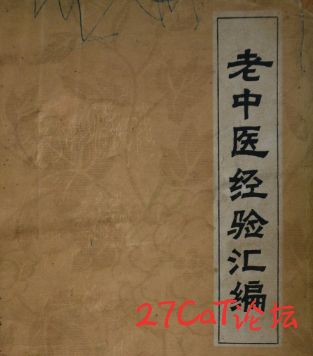 老中医经验汇编
27CaT论坛